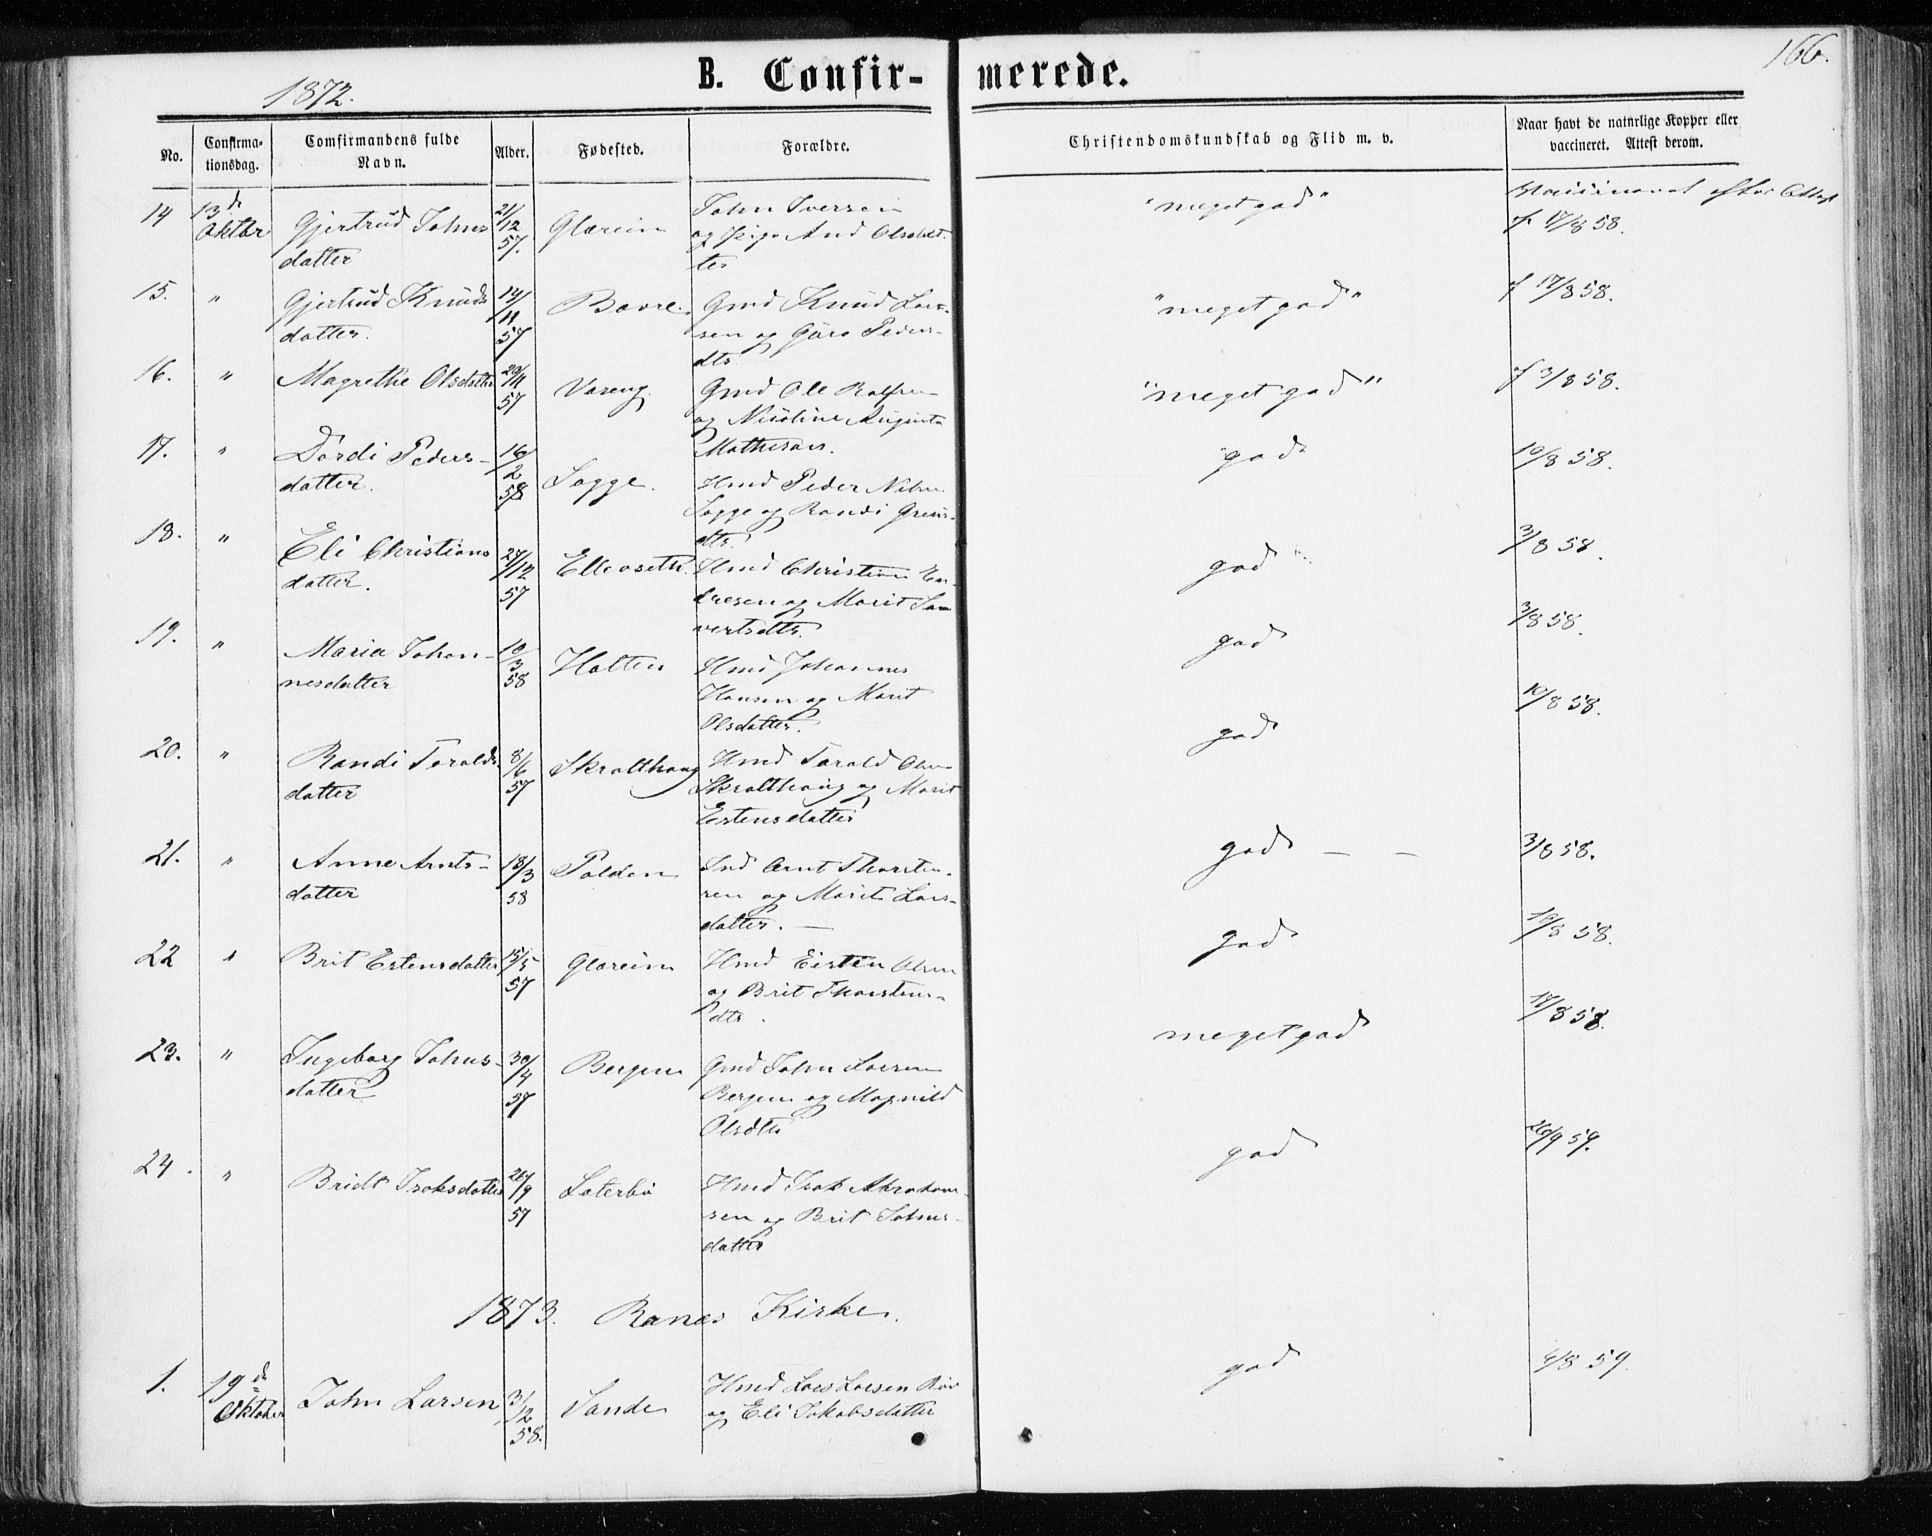 166.
1872.
B. Confirmerede.
No.
Confirmationsdag.
Comfirmandens fulde Navn.
Alder.
Fødested.
Forældre.
Christendomskundskab og Flid m. v.
Naar havt de naturlige Kopper eller vaccineret. Attest derom.
14 13de Oktbr Gjertrud Johnsdatter 21/12 57. Glærein John Iversen og Olsdatter "meget god" Attest f 17/8 58.
15. " Gjertrud Knudsdatter. 14/11 57 Bovre. Gmd Knud Larsen og Guro Pedersdtr "meget god" f 17/8 58.
16. " Magrethe Olsdatter 20/11 57 Vaseng. Gmd Ole Rolfsen og Nicoline Augusta Mathisdtr. "meget god" f 3/8 58.
17. " Dordi Pedersdatter. 16/2 58 Sogge. Hmd Peder Nilsen Sogge og Randi dtr. god 10/8 58.
18. " Eli Christiansdatter. 27/12 57 Ellevseth. Hmd Christian Endresen og Marit Sivertsdtr. god 3/8 58.
19. " Maria Johannesdatter 10/3 58 Holten Hmd Johannes Hansen og Marit Olsdatter. god 3/8 58.
20. " Randi Toraldsdatter 8/6 57 Skralthoug Hmd Torald Olsen Skralthoug og Marit Estensdatter god 10/8 58.
21. " Anne Arntsdatter 18/3 58 Polden Ind Arnt Thorstensen og Marit Larsdatter. — god — — 3/8 58.
22 " Brit Estensdatter 15/5 57 Glærein Hmd Eisten Olsen og Brit Thorstensdtr. god 10/8 58.
23. " Ingeborg Johnsdatter 30/4 57 Bergem Gmd John Larsen Bergem og Magnild Olsdtr meget god 17/8 58.
24. " Bridt Isaksdatter 26/9 57 Sæterbø Hmd Isak Abrahamsen og Brit Johnsdatter god 26/9 59.
1873. Ranes Kirke.
1. 19de Oktober John Larsen 3/12 58. Sande Hmd Lars Larsen og Eli Jakobsdatter god 4/8 59.